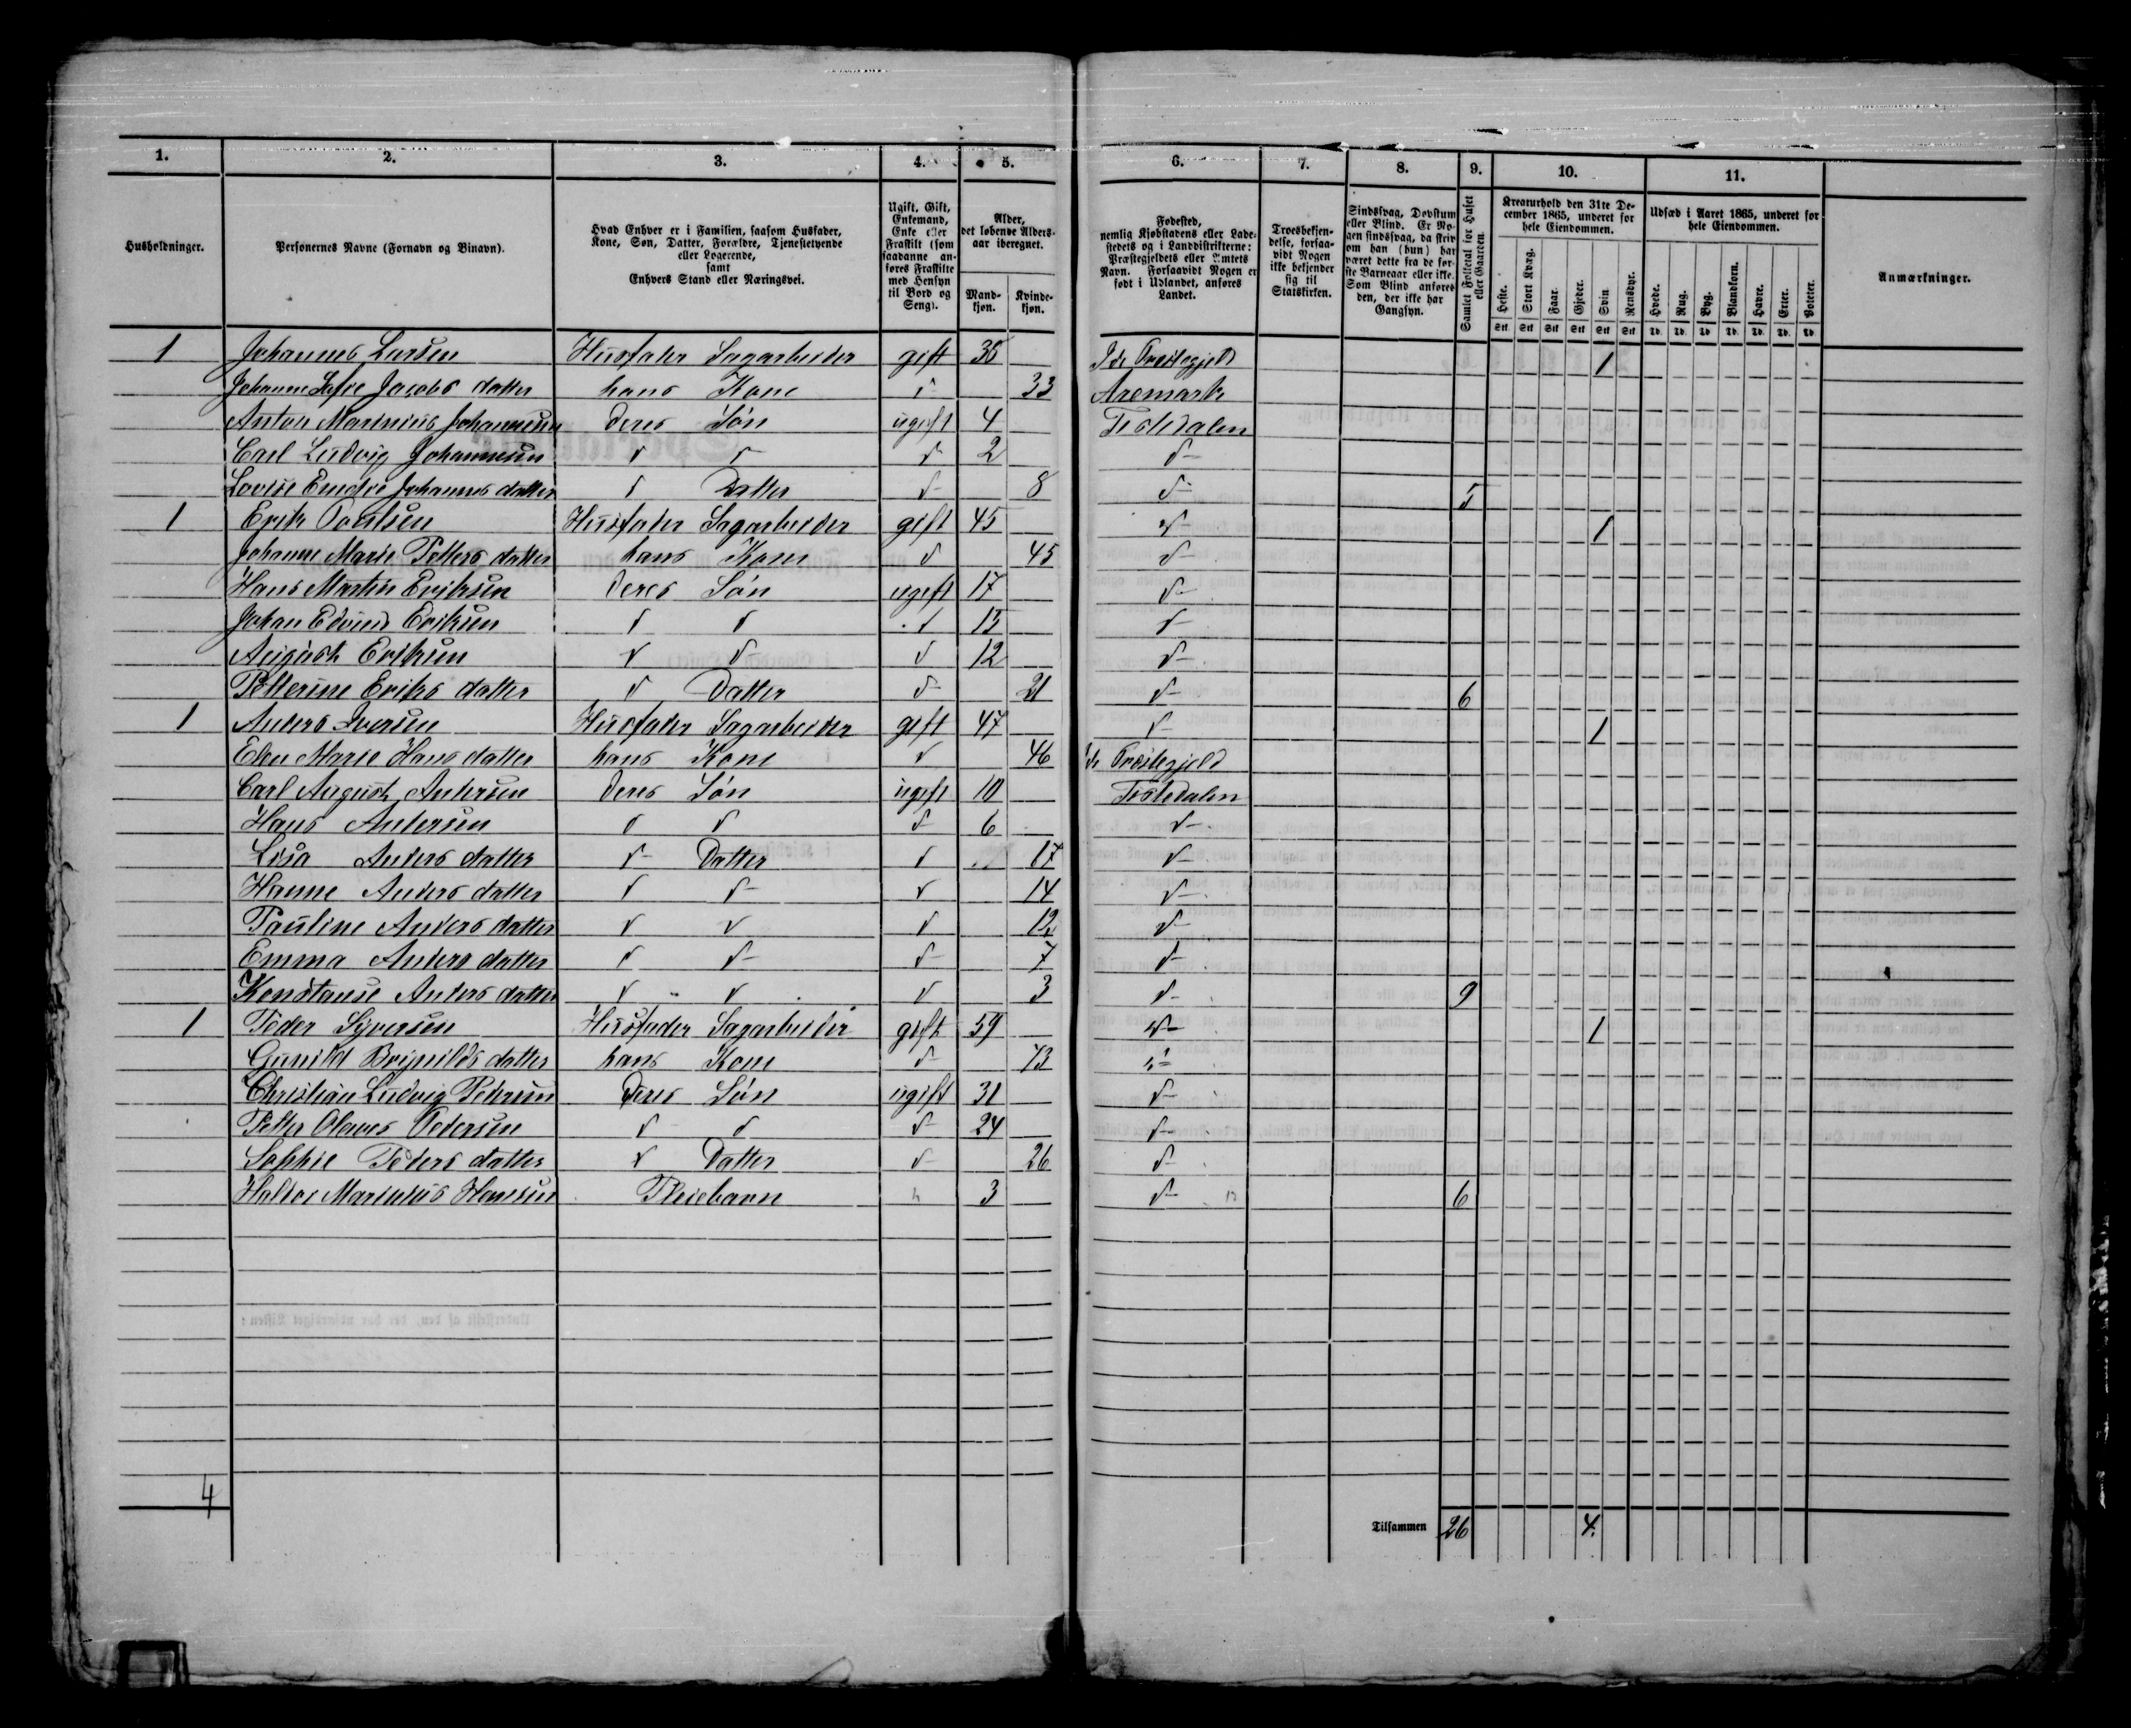 1. 2. 3. 4. 5. 6. 7. 8. 9. 10. 11.
Husholdninger.
Personernes Navne (Fornavn og Binavn).
Hvad Enhver er i Familien, saasom Husfader,
Kone, Søn, Datter, Forældre, Tjenestetyende
eller Logerende,
samt
Enhvers Stand eller Næringsvei.
Ugift, Gift,
Enkemand,
Enke eller
Fraskilt (som
saadanne an-
føres Fraskilte
med Hensyn
til Bord og
Seng).
Alder,
det løbende Alders-
aar iberegnet.
Mand-
kjøn.
Kvinde-
kjøn.
Fødested,
nemlig Kjøbstadens eller Lade-
stedets og i Landdistrikterne:
Præstegjeldets eller Amtets
Navn. Forsaavidt Nogen er
født i Udlandet, anføres
Landet.
Troesbekjen-
delse, forsaa-
vidt Nogen
ikke bekjender
sig til
Statskirken.
Sindssvag, Døvstum
eller Blind. Er No-
gen sindssvag, da skriv
om han (hun) har
været dette fra de før-
ste Barneaar eller ikke.
Som Blind anføres
den, der ikke har
Gangsyn.
Samlet Folketal for Huset
eller Gaarden.
Kreaturhold den 31te De-
cember 1865, underet for
hele Eiendommen.
Heste. Stort Kvæg. Faar. Gjeder. Svin. Rensdyr.
Stk. Stk. Stk. Stk. Stk. Stk.
Udsæd i Aaret 1865, underet for
hele Eiendommen.
Hvede. Rug. Byg. Blandkorn. Havre. Erter. Poteter.
Td. Td. Td. Td. Td. Td. Td.
Anmærkninger.
1 Johannes Larsen Husfader Sagarbeider gift 38 Ide Præstegjeld 1
Johanne Jacobs datter hans Kone d 33 Aremark
Anton Marinius Johannesen Deres Søn ugift 4 Tistedalen
Carl Ludvig Johannesen d d d 2 d
Lovise Johannes datter d Datter d 8 d 5
1 Erik Poulsen Husfader Sagarbeider gift 45 d 1
Johanne Marie Petters datter hans Kone d 45 d
Hans Martin Eriksen Deres Søn ugift 17 d
Johan Edvind Eriksen d d d 15 d
August Eriksen d d d 12 d
Petterine Eriks datter d Datter d 21 d 6
1 Anders Iversen Husfader Sagarbeider gift 47 d 1
Elen Marie Hans datter hans Kone d 46 Ide Præstegjeld
Carl August Andersen Deres Søn ugift 10 Tistedalen
Hans Andersen d d d 6 d
Lisa Anders datter d Datter d 17 d
Hanne Anders datter d d d 14 d
Pauline Anders datter d d d 12 d
Emma Anders datter d d d 7 d
Konstanse Anders datter d d d 3 d 9
1 Peder Syversen Husfader Sagarbeider gift 59 d 1
Gunild Brynilds datter hans Kone d 73 d
Christian Ludvig Pedersen Deres Søn ugift 31 d
Petter Olaves Pedersen d d d 24 d
Sophie Peders datter d Datter d 26 d
Halvor Marinius Hansen Pleiebarn 3 d 6
4
Tilsammen 26 4.